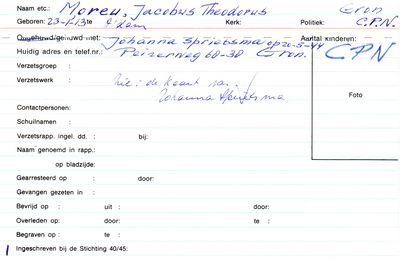 Naam etc.: Moreu, Jacobus Theodorus Gron
Geboren: 23-1-13 te A'dam Kerk: Politiek: C.P.N.
Ongehuwd/gehuwd met: Johanna Sprietsma op 20-5-44 Aantal kinderen:
Huidig adres en telef.nr.: Peizerweg 68-38 Gron. CPN
Verzetsgroep :
Verzetswerk : zie: de kaart van
Johanna Sprietsma
Foto
Contactpersonen:
Schuilnaam :
Verzetsrapp. ingel. dd. : bij:
Naam genoemd in rapp.:
op bladzijde:
Gearresteerd op : door:
Gevangen gezeten in :
Bevrijd op : uit : door:
Overleden op : door: te :
Begraven op : te :
Ingeschreven bij de Stichting 40/45: